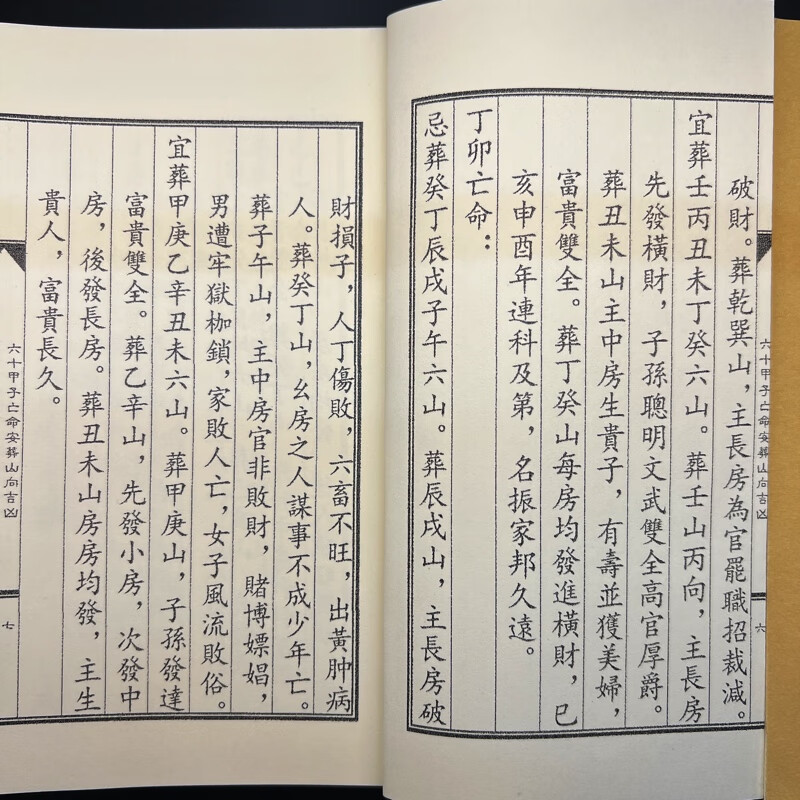 破財。葬乾巽山，主長房為官罷職招裁減。
宜葬壬丙丑未丁癸六山。葬壬山丙向，主長房
先發橫財，子孫聰明文武雙全高官厚爵。
葬丑未山主中房生貴子，有壽並獲美婦，
富貴雙全。葬丁癸山每房均發進橫財，巳
亥申酉年連科及第，名振家邦久遠。
丁卯亡命：
忌葬癸丁辰戌子午六山。葬辰戌山，主長房破
六十甲子亡命安葬山向吉凶
六
財損子，人丁傷敗，六畜不旺，出黃肿病
人。葬癸丁山，幺房之人謀事不成少年亡。
葬子午山，主中房官非敗財，賭博嫖娼，
男遭牢獄枷鎖，家敗人亡，女子風流敗俗。
宜葬甲庚乙辛丑未六山。葬甲庚山，子孫發達
富貴雙全。葬乙辛山，先發小房，次發中
房，後發長房。葬丑未山房房均發，主生
貴人，富貴長久。
六十甲子亡命安葬山向吉凶
七